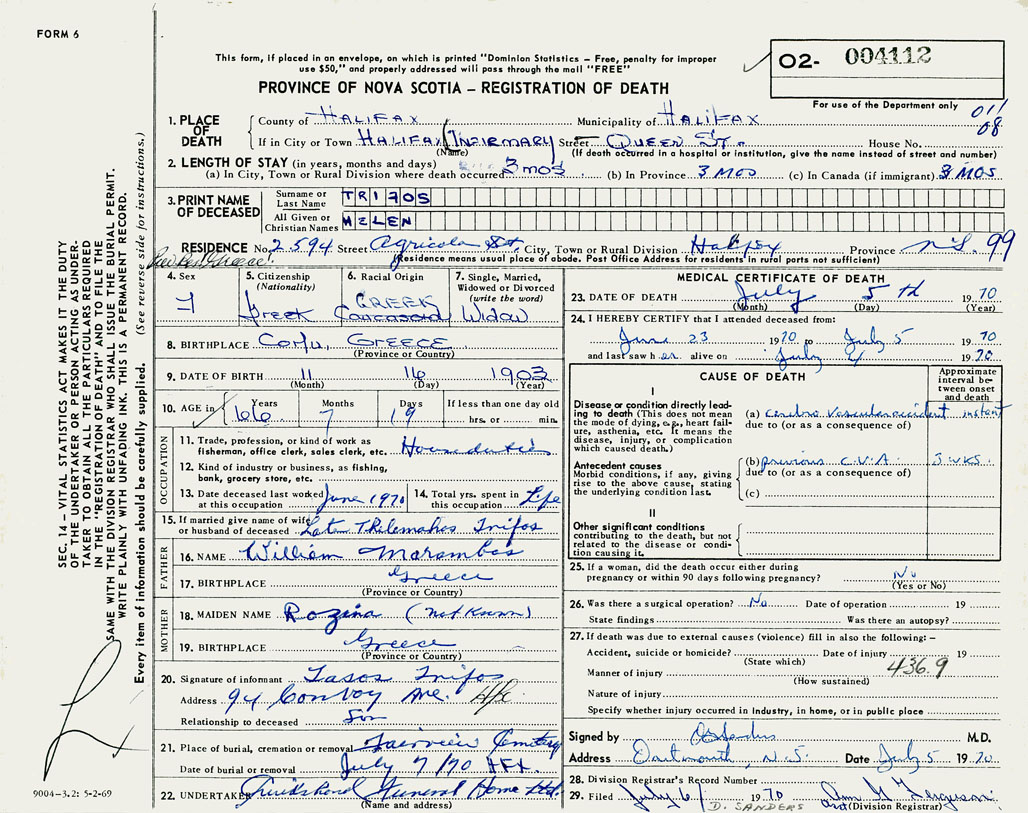 FORM 6
This form, if placed in an envelope, on which is printed "Dominion Statistics – Free, penalty for improper
use $50," and properly addressed will pass through the mail "FREE"
O2- 004112
PROVINCE OF NOVA SCOTIA – REGISTRATION OF DEATH
For use of the Department only
011
08
1. PLACE OF DEATH
County of HALIFAX Municipality of HALIFAX
If in City or Town HALIFAX (INFIRMARY Street QUEEN ST. House No.
(Name) (If death occurred in a hospital or institution, give the name instead of street and number)
2. LENGTH OF STAY (in years, months and days)
(a) In City, Town or Rural Division where death occurred 3 mos (b) In Province 3 MOS (c) In Canada (if immigrant) 3 MOS.
3. PRINT NAME OF DECEASED
Surname or Last Name TRIFOS
All Given or Christian Names HELEN
RESIDENCE No. 2594 Street Agricola St. City, Town or Rural Division Halifax Province N.S. 99
(Residence means usual place of abode. Post Office Address for residents in rural parts not sufficient)
4. Sex F
5. Citizenship (Nationality) Greek
6. Racial Origin GREEK Caucasoid
7. Single, Married, Widowed or Divorced (write the word) Widow
8. BIRTHPLACE Corfu, GREECE
(Province or Country)
9. DATE OF BIRTH 11 16 1903
(Month) (Day) (Year)
10. AGE in Years Months Days If less than one day old
66 7 19 hrs. or min.
OCCUPATION
11. Trade, profession, or kind of work as fisherman, office clerk, sales clerk, etc. Housduties
12. Kind of industry or business, as fishing, bank, grocery store, etc.
13. Date deceased last worked at this occupation June 1970
14. Total yrs. spent in this occupation Life
15. If married give name of wife or husband of deceased Late Thilemahos Trifos
FATHER
16. NAME William Marambas
17. BIRTHPLACE Greece
(Province or Country)
MOTHER
18. MAIDEN NAME Rozina (not known)
19. BIRTHPLACE Greece
(Province or Country)
20. Signature of informant Tasos Trifos
Address 94 Convoy Ave. Hfx
Relationship to deceased Son
21. Place of burial, cremation or removal Fairview Cemetery
Date of burial or removal July 7/70 HFX.
22. UNDERTAKER Funeral Home Ltd.
(Name and address)
MEDICAL CERTIFICATE OF DEATH
23. DATE OF DEATH July 5th 1970
(Month) (Day) (Year)
24. I HEREBY CERTIFY that I attended deceased from:
June 23 1970 to July 5 1970
and last saw her alive on July 4 1970
CAUSE OF DEATH
Approximate interval between onset and death
I
Disease or condition directly leading to death (This does not mean the mode of dying, e.g., heart failure, asthenia, etc. It means the disease, injury, or complication which caused death.)
(a) cerebro vascular accident instant
due to (or as a consequence of)
Antecedent causes
Morbid conditions, if any, giving rise to the above cause, stating the underlying condition last.
(b) previous C.V.A. 3 WKS.
due to (or as a consequence of)
(c)
II
Other significant conditions
contributing to the death, but not related to the disease or condition causing it.
25. If a woman, did the death occur either during pregnancy or within 90 days following pregnancy? No
(Yes or No)
26. Was there a surgical operation? No Date of operation 19
State findings Was there an autopsy?
27. If death was due to external causes (violence) fill in also the following: –
Accident, suicide or homicide? Date of injury 19
(State which)
Manner of injury 436.9
(How sustained)
Nature of injury
Specify whether injury occurred in industry, in home, or in public place
Signed by M.D.
Address Dartmouth, N.S. Date July 5 1970
28. Division Registrar's Record Number
29. Filed July 6 1970
D. SANDERS (Division Registrar)
SEC. 14 – VITAL STATISTICS ACT MAKES IT THE DUTY
OF THE UNDERTAKER OR PERSON ACTING AS UNDER-
TAKER TO OBTAIN ALL THE PARTICULARS REQUIRED
IN THE "REGISTRATION OF DEATH" AND TO FILE THE
SAME WITH THE DIVISION REGISTRAR WHO SHALL ISSUE THE BURIAL PERMIT.
WRITE PLAINLY WITH UNFADING INK. THIS IS A PERMANENT RECORD.
Every item of information should be carefully supplied. (See reverse side for instructions.)
9004-3.2: 5-2-69